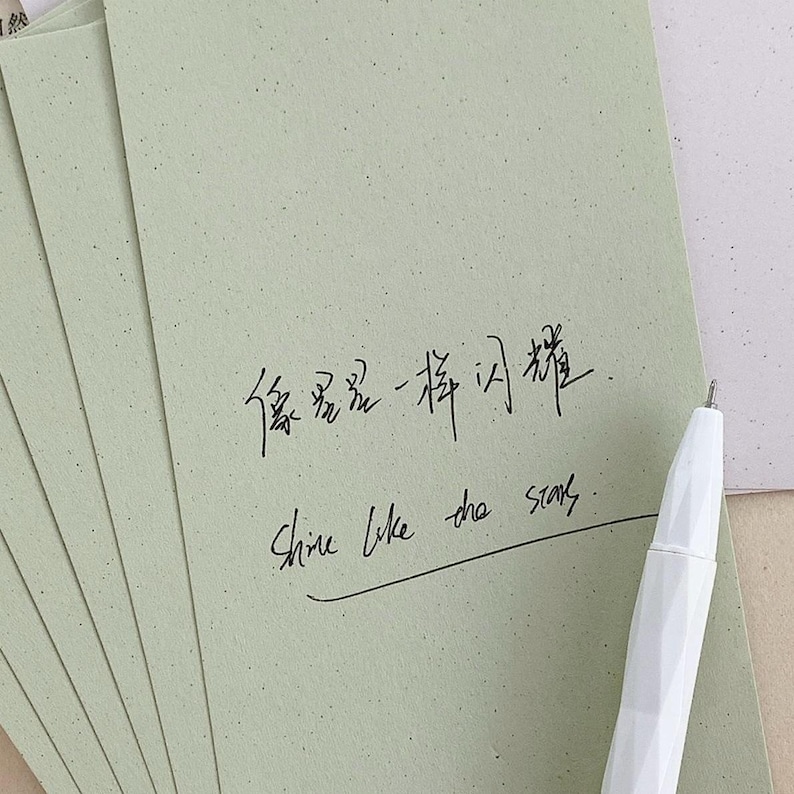 然
像星星一样闪耀.
Shine like the stars.